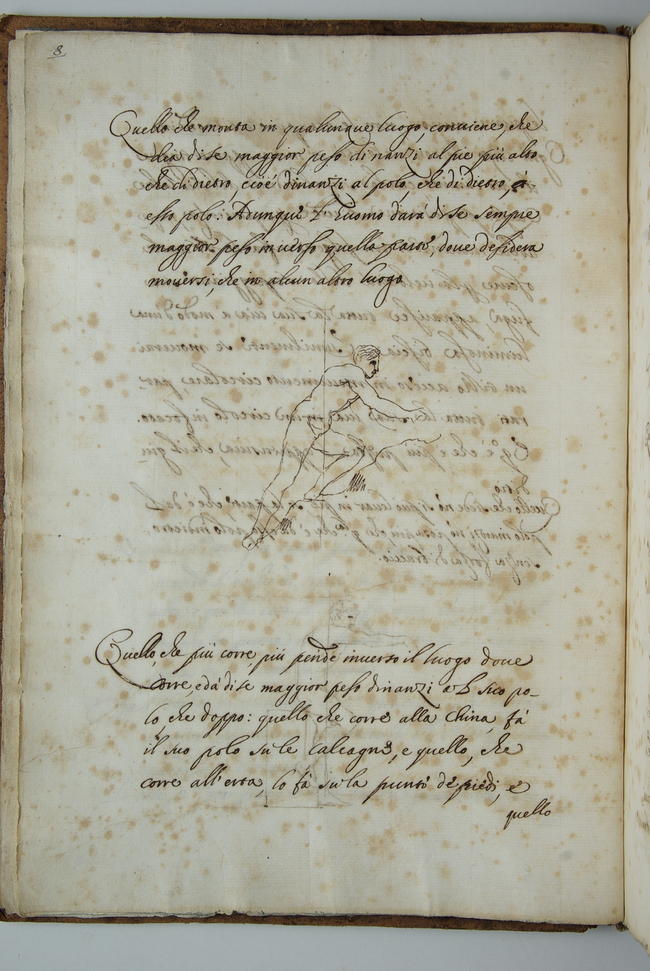 8
Quello che monta in qualunque luogo, conviene, che
dia di se maggior peso dinanzi al pie più alto
che di dietro, cioè dinanzi al polo, che di dietro, à
esso polo: Adunque l'huomo darà di se sempre
maggior peso inverso quella parte, dove desidera
moversi, che in alcun altro luogo
Quello, che più corre, più pende inverso il luogo dove
corre, e dà di se maggior peso dinanzi al suo po-
lo che doppo: quello che corre alla china, fà
il suo polo su le calcagne, e quello, che
corre all'erta, lo fà su la punte de piedi, e
quello